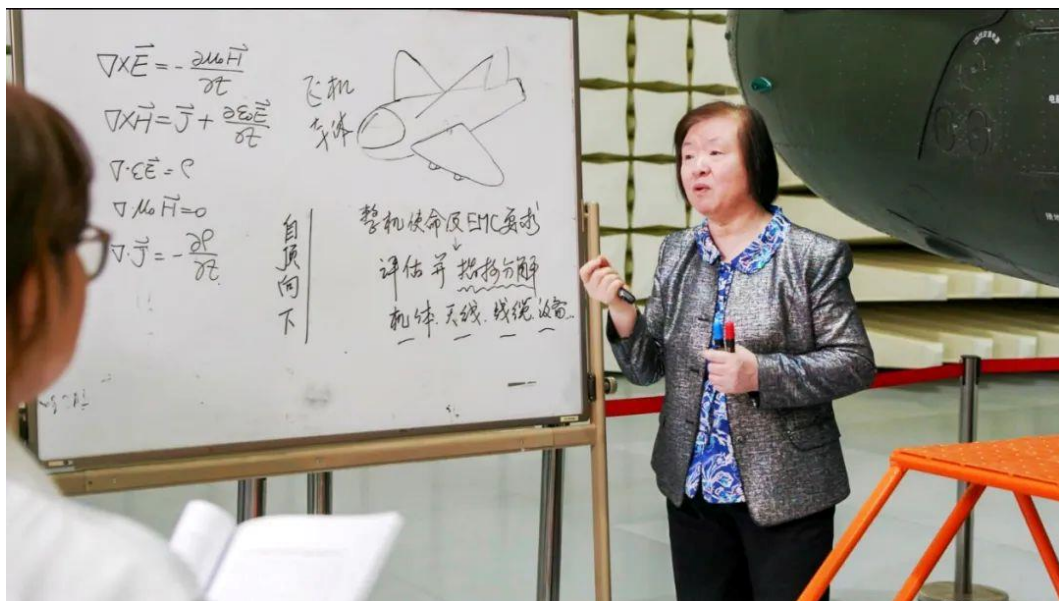 ∇×E⃗ = -∂μ₀H⃗/∂t
∇×H⃗ = J⃗ + ∂ε₀E⃗/∂t
∇·εE⃗ = ρ
∇·μ₀H⃗ = 0
∇·J⃗ = -∂ρ/∂t
飞机
自顶向下
整机使命及EMC要求
↓
评估并指标分解
机体.天线.线缆.设备...